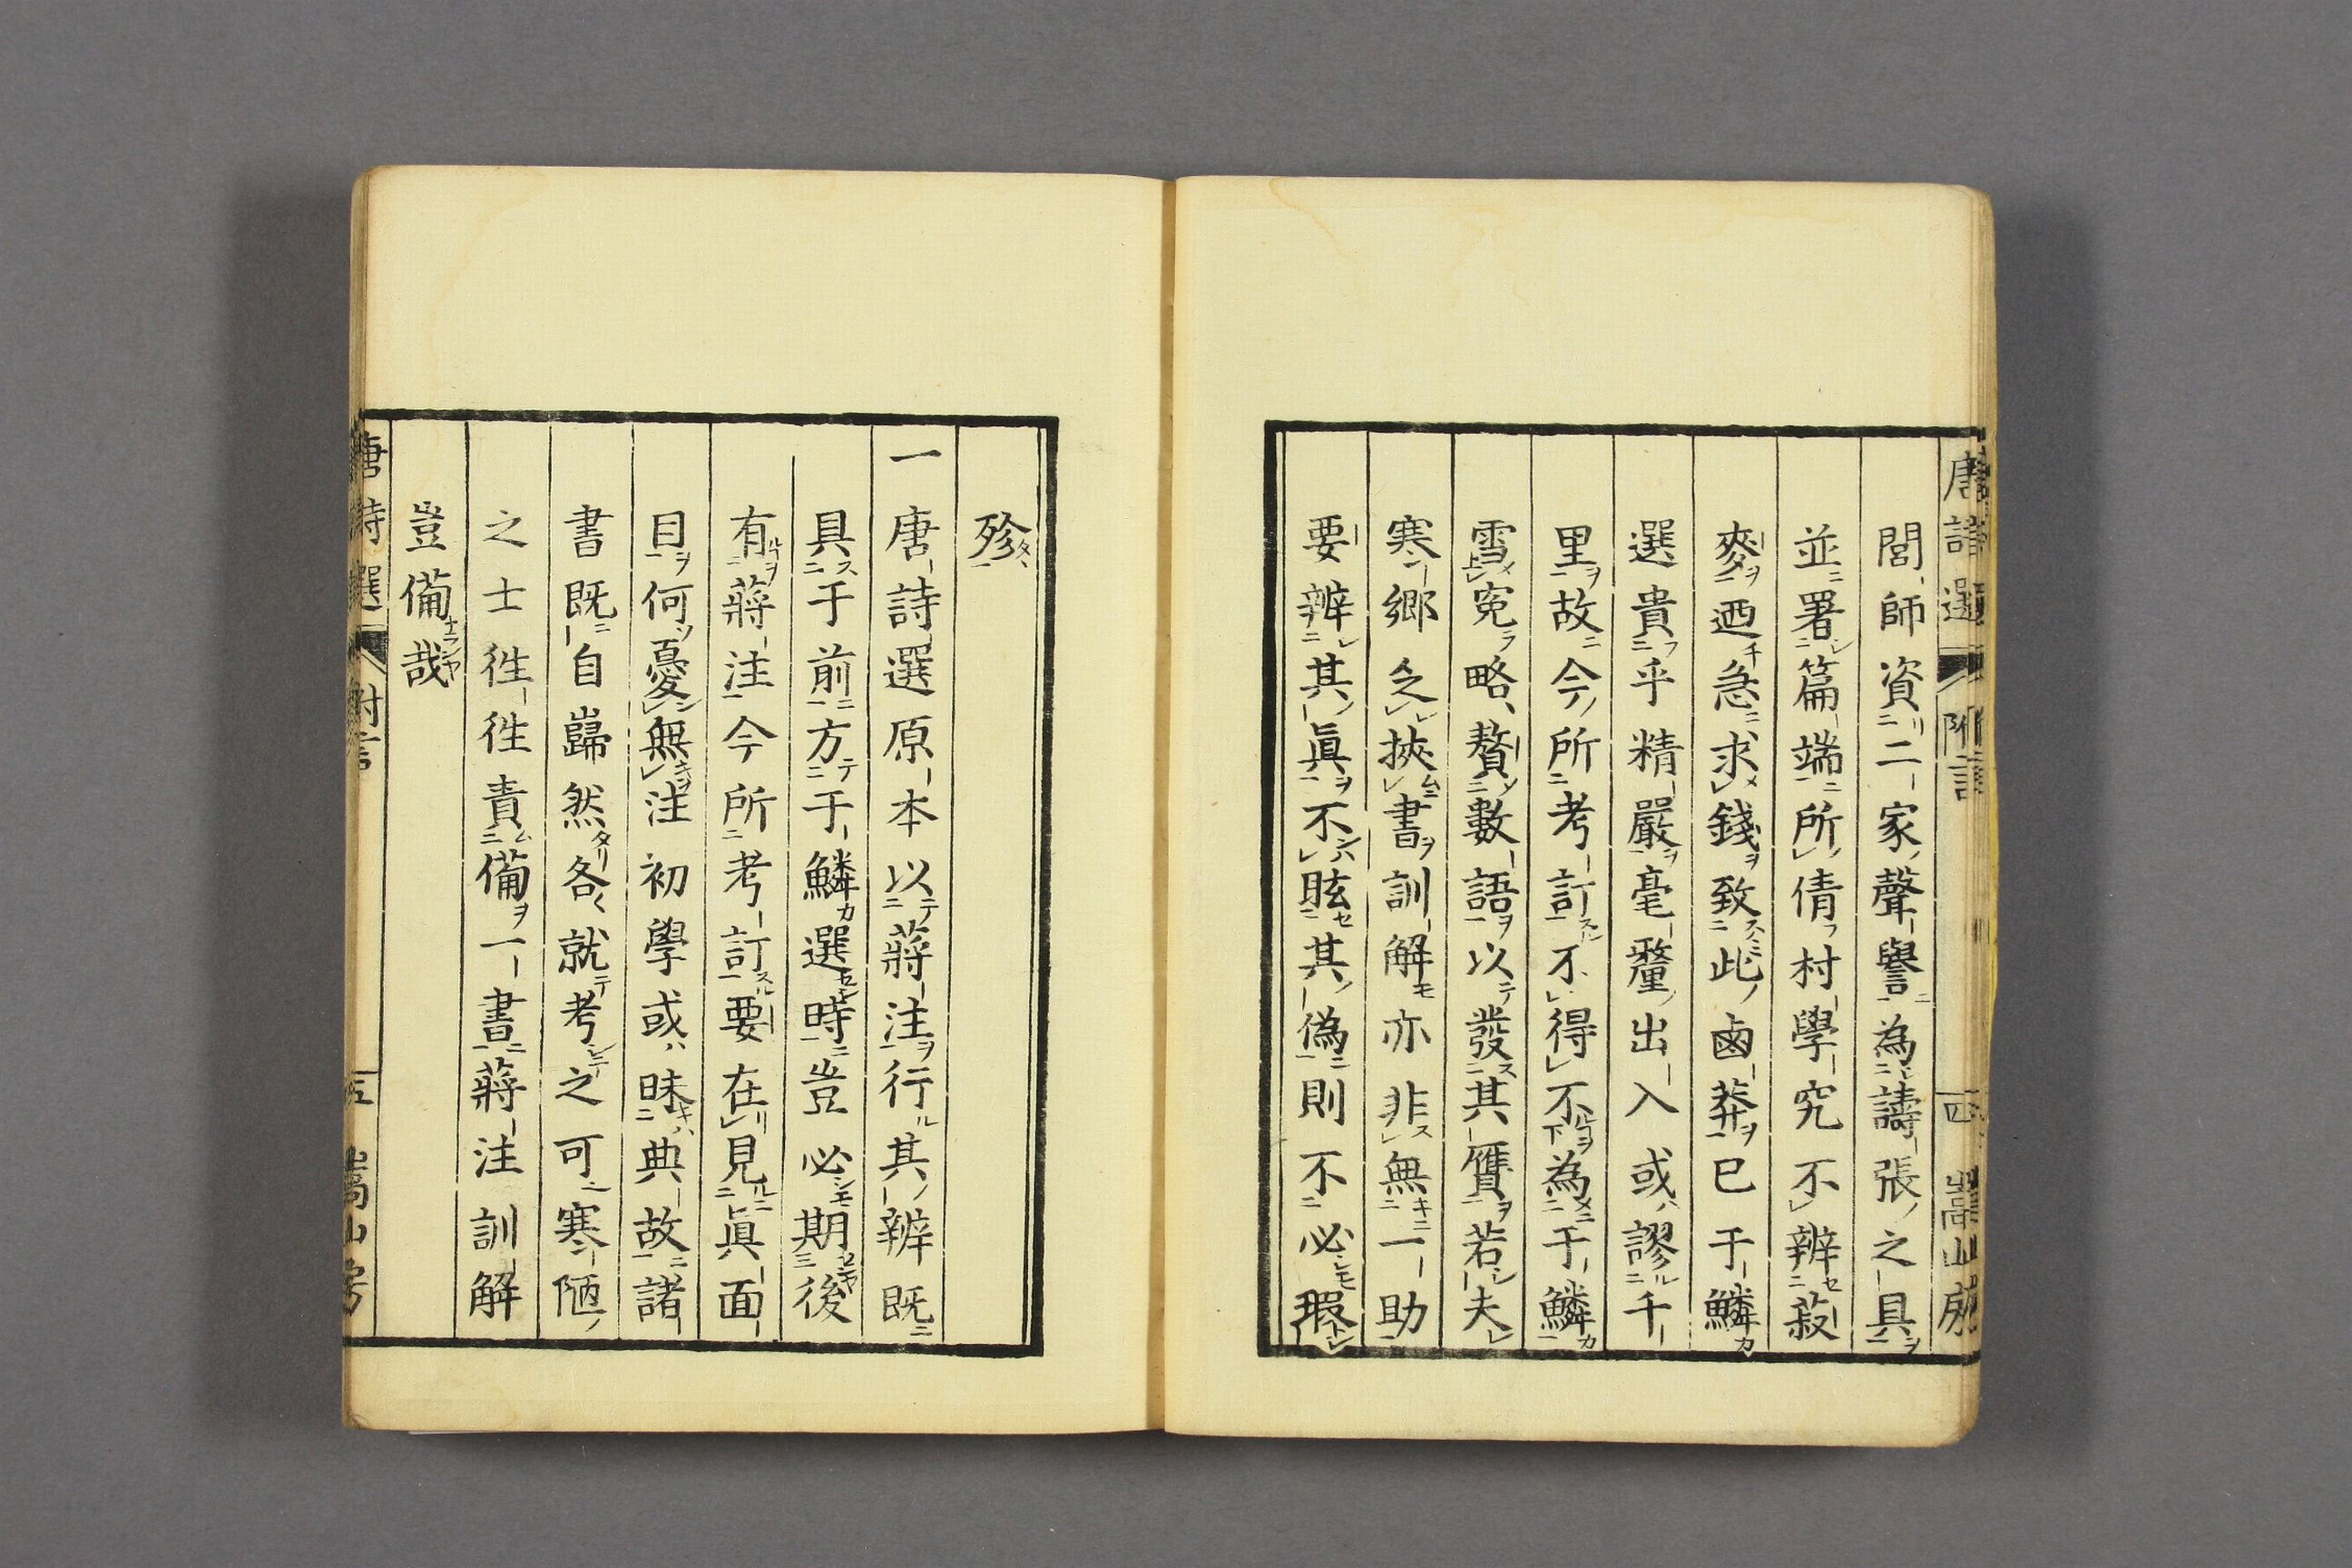 唐詩選 附言 四 嵩山房
閭師資二家聲譽為譸張之具
並署篇端所倩村學究不辨菽
麥迺急求錢致此鹵莽已于鱗
選貴乎精嚴毫釐出入或謬千
里故今所考訂不得不為于鱗
雪寃略贅數語以發其贋若夫
寒鄉乏挾書訓解亦非無一助
要辨其眞不眩其偽則不必瑕
殄
一唐詩選原本以蔣注行其辨既
具于前方于鱗選時豈必期後
有蔣注今所考訂要在見眞面
目何憂無注初學或昧典故諸
書既自歸然各就考之可寒陋
之士徃徃責備一書蔣注訓解
豈備哉
唐詩選 附言 五 嵩山房